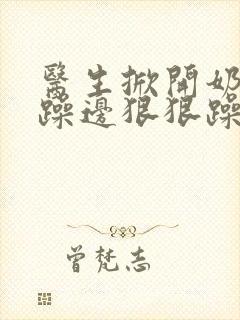 醫生掀開奶
躁邊狠狠躁
曾梵志